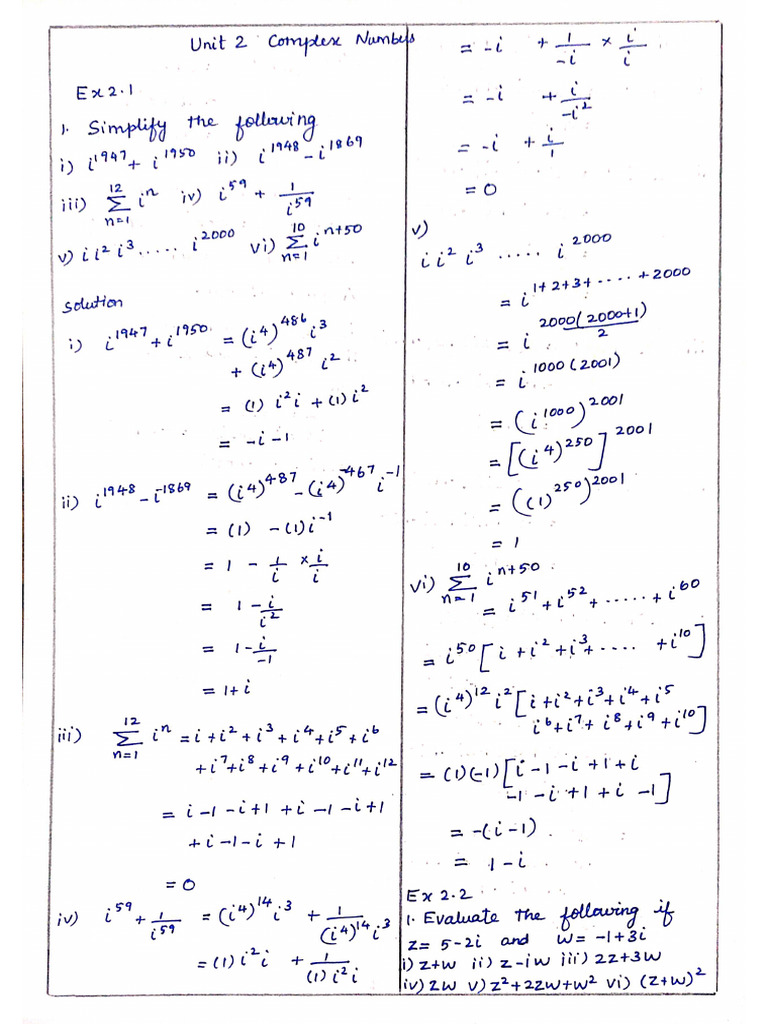 Unit 2 Complex Numbers
Ex 2.1
1. Simplify the following
i) i^1947 + i^1950 ii) i^1948 - i^1869
iii) Σ_{n=1}^{12} i^n iv) i^59 + 1/i^59
v) i i^2 i^3 ..... i^2000 vi) Σ_{n=1}^{10} i^{n+50}
Solution
i) i^1947 + i^1950 = (i^4)^486 i^3
+ (i^4)^487 i^2
= (1) i^2 i + (1) i^2
= -i - 1
ii) i^1948 - i^-1869 = (i^4)^487 - (i^4)^-467 i^-1
= (1) - (1) i^-1
= 1 - 1/i × i/i
= 1 - i/i^2
= 1 - i/-1
= 1 + i
iii) Σ_{n=1}^{12} i^n = i + i^2 + i^3 + i^4 + i^5 + i^6
+ i^7 + i^8 + i^9 + i^10 + i^11 + i^12
= i - 1 - i + 1 + i - 1 - i + 1
+ i - 1 - i + 1
= 0
iv) i^59 + 1/i^59 = (i^4)^14 i^3 + 1/(i^4)^14 i^3
= (1) i^2 i + 1/(1) i^2 i
= -i + 1/-i × i/i
= -i + i/-i^2
= -i + i/1
= 0
v)
i i^2 i^3 ..... i^2000
= i^{1+2+3+.....+2000}
= i^{2000(2000+1)/2}
= i^{1000(2001)}
= (i^1000)^2001
= [(i^4)^250]^2001
= ((1)^250)^2001
= 1
vi) Σ_{n=1}^{10} i^{n+50}
= i^51 + i^52 + ..... + i^60
= i^50 [i + i^2 + i^3 + .... + i^10]
= (i^4)^12 i^2 [i + i^2 + i^3 + i^4 + i^5
i^6 + i^7 + i^8 + i^9 + i^10]
= (1)(-1) [i - 1 - i + 1 + i
-1 - i + 1 + i - 1]
= -(i - 1)
= 1 - i
Ex 2.2
1. Evaluate the following if
z = 5 - 2i and w = -1 + 3i
i) z + w ii) z - iw iii) 2z + 3w
iv) zw v) z^2 + 2zw + w^2 vi) (z + w)^2